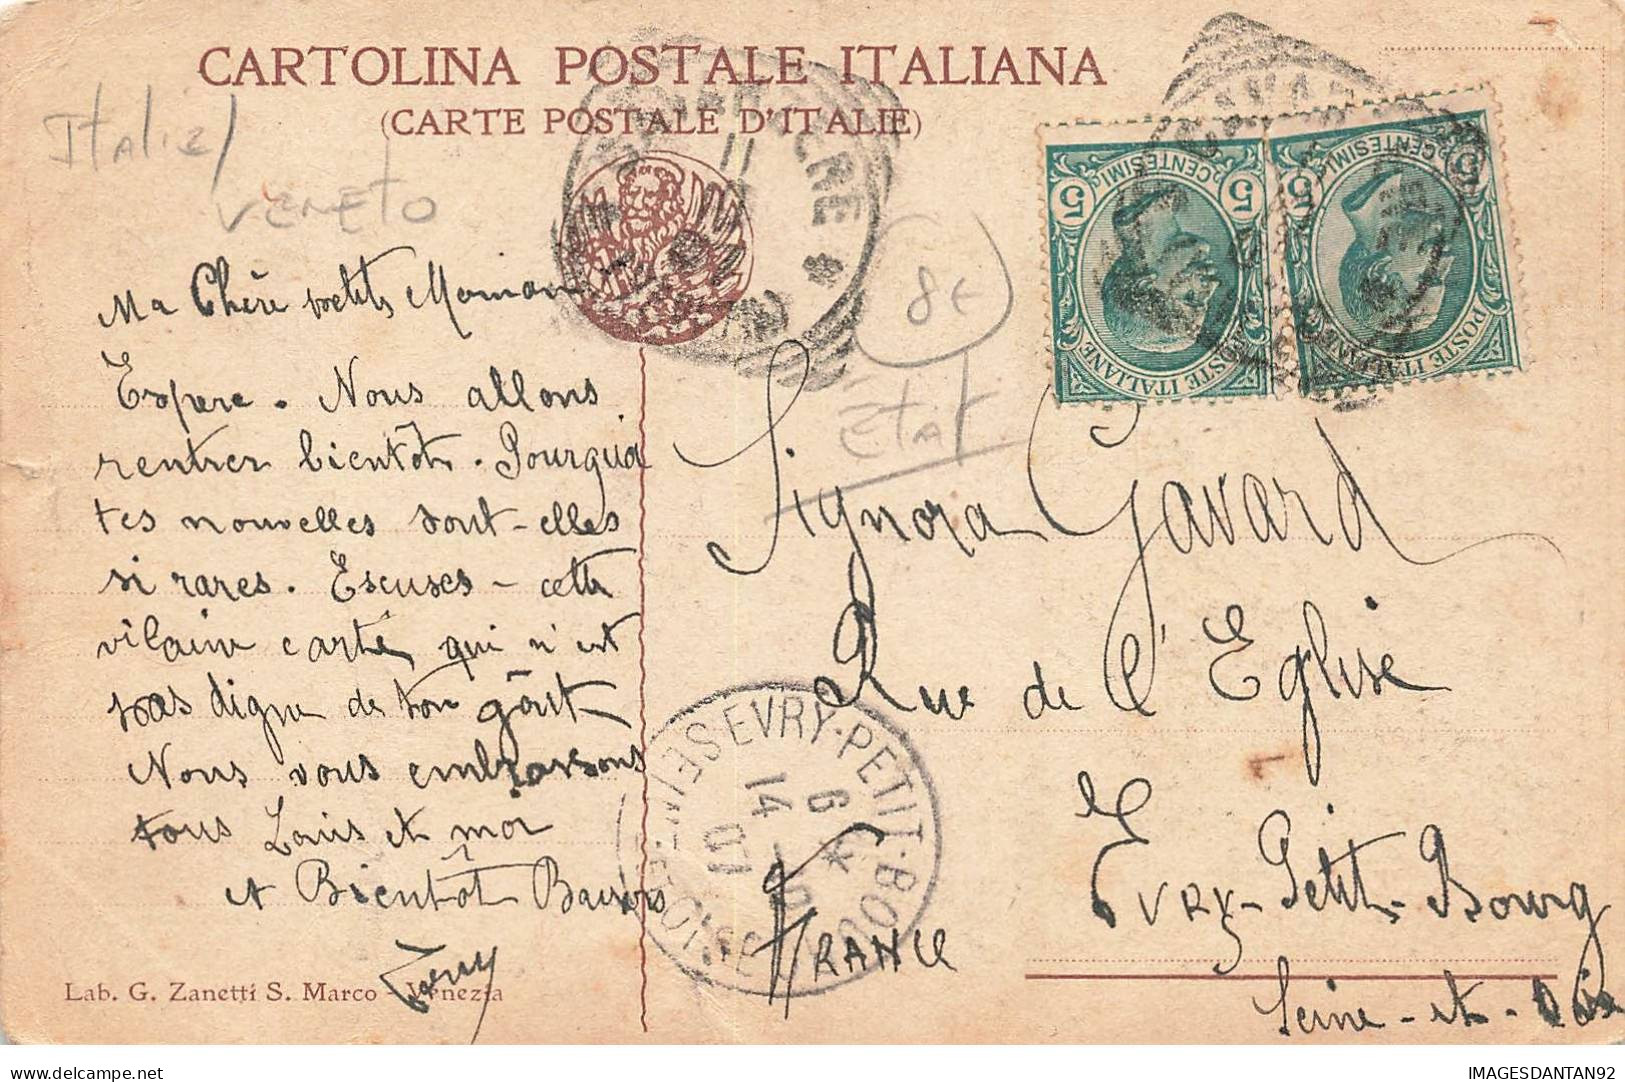 CARTOLINA POSTALE ITALIANA
(CARTE POSTALE D'ITALIE)
Italie
VENETO
8€
État
5 CENTESIMI 5
POSTE ITALIANE
5 CENTESIMI 5
POSTE ITALIANE
Ma Chère petite Maman
Espere. Nous allons
rentrer bientôt. Pourquoi
tes nouvelles sont-elles
si rares. Escuses - cette
vilaine carte qui n'est
pas digne de ton goût
Nous vous embrassons
tous Louis et moi
et Bientôt Baisers
Signora Gavard
Rue de l'Eglise
Evry-Petit-Bourg
Seine-et-Oise
FRANCE
EVRY-PETIT-BOURG
SEINE-ET-OISE
6
14
07
Lab. G. Zanetti S. Marco - Venezia
IMAGESDANTAN92